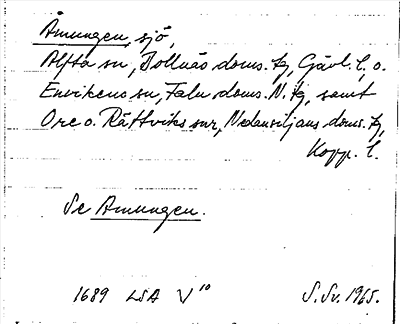 Ämungen, sjö,
Alfta sn, Bollnäs doms. tg, Gävl. l., o.
Envikens sn, Falu doms. N. tg, samt
Ore o. Rättviks snr, Nedansiljans doms. tg,
Kopp. l.
Se Amungen.
1689 LSA V 10
S. Sv. 1965.